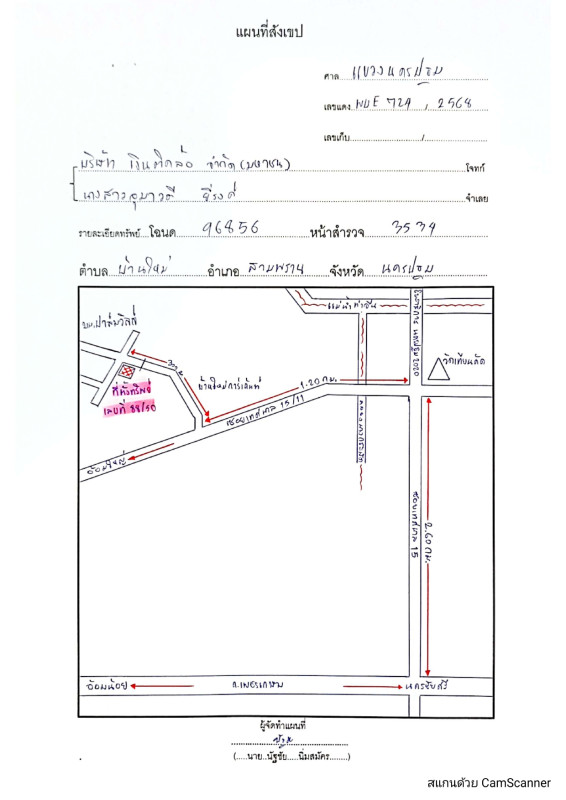 แผนที่สังเขป
ศาล แขวงนครปฐม
เลขแดง ผบE 724 , 2568
เลขเก็บ /
บริษัท เงินติดล้อ จำกัด (มหาชน) โจทก์
นางสาว จำเลย
รายละเอียดทรัพย์ โฉนด 96856 หน้าสำรวจ 3534
ตำบล บ้านใหม่ อำเภอ สามพราน จังหวัด นครปฐม
แม่น้ำท่าจีน
มบ.ปาล์มวิลล์
วัดเทียนดัด
ที่ตั้งทรัพย์
เลขที่ 88/50
บ้านใหม่การ์เด้นท์
1.20 กม.
ซอยเทศบาล 15/11
อ้อมใหญ่
2.60 กม.
อ้อมน้อย
ถ.เพชรเกษม
นครชัยศรี
ผู้จัดทำแผนที่
(....นาย..นัฐชัย.....นิ่มสมัคร........)
สแกนด้วย CamScanner